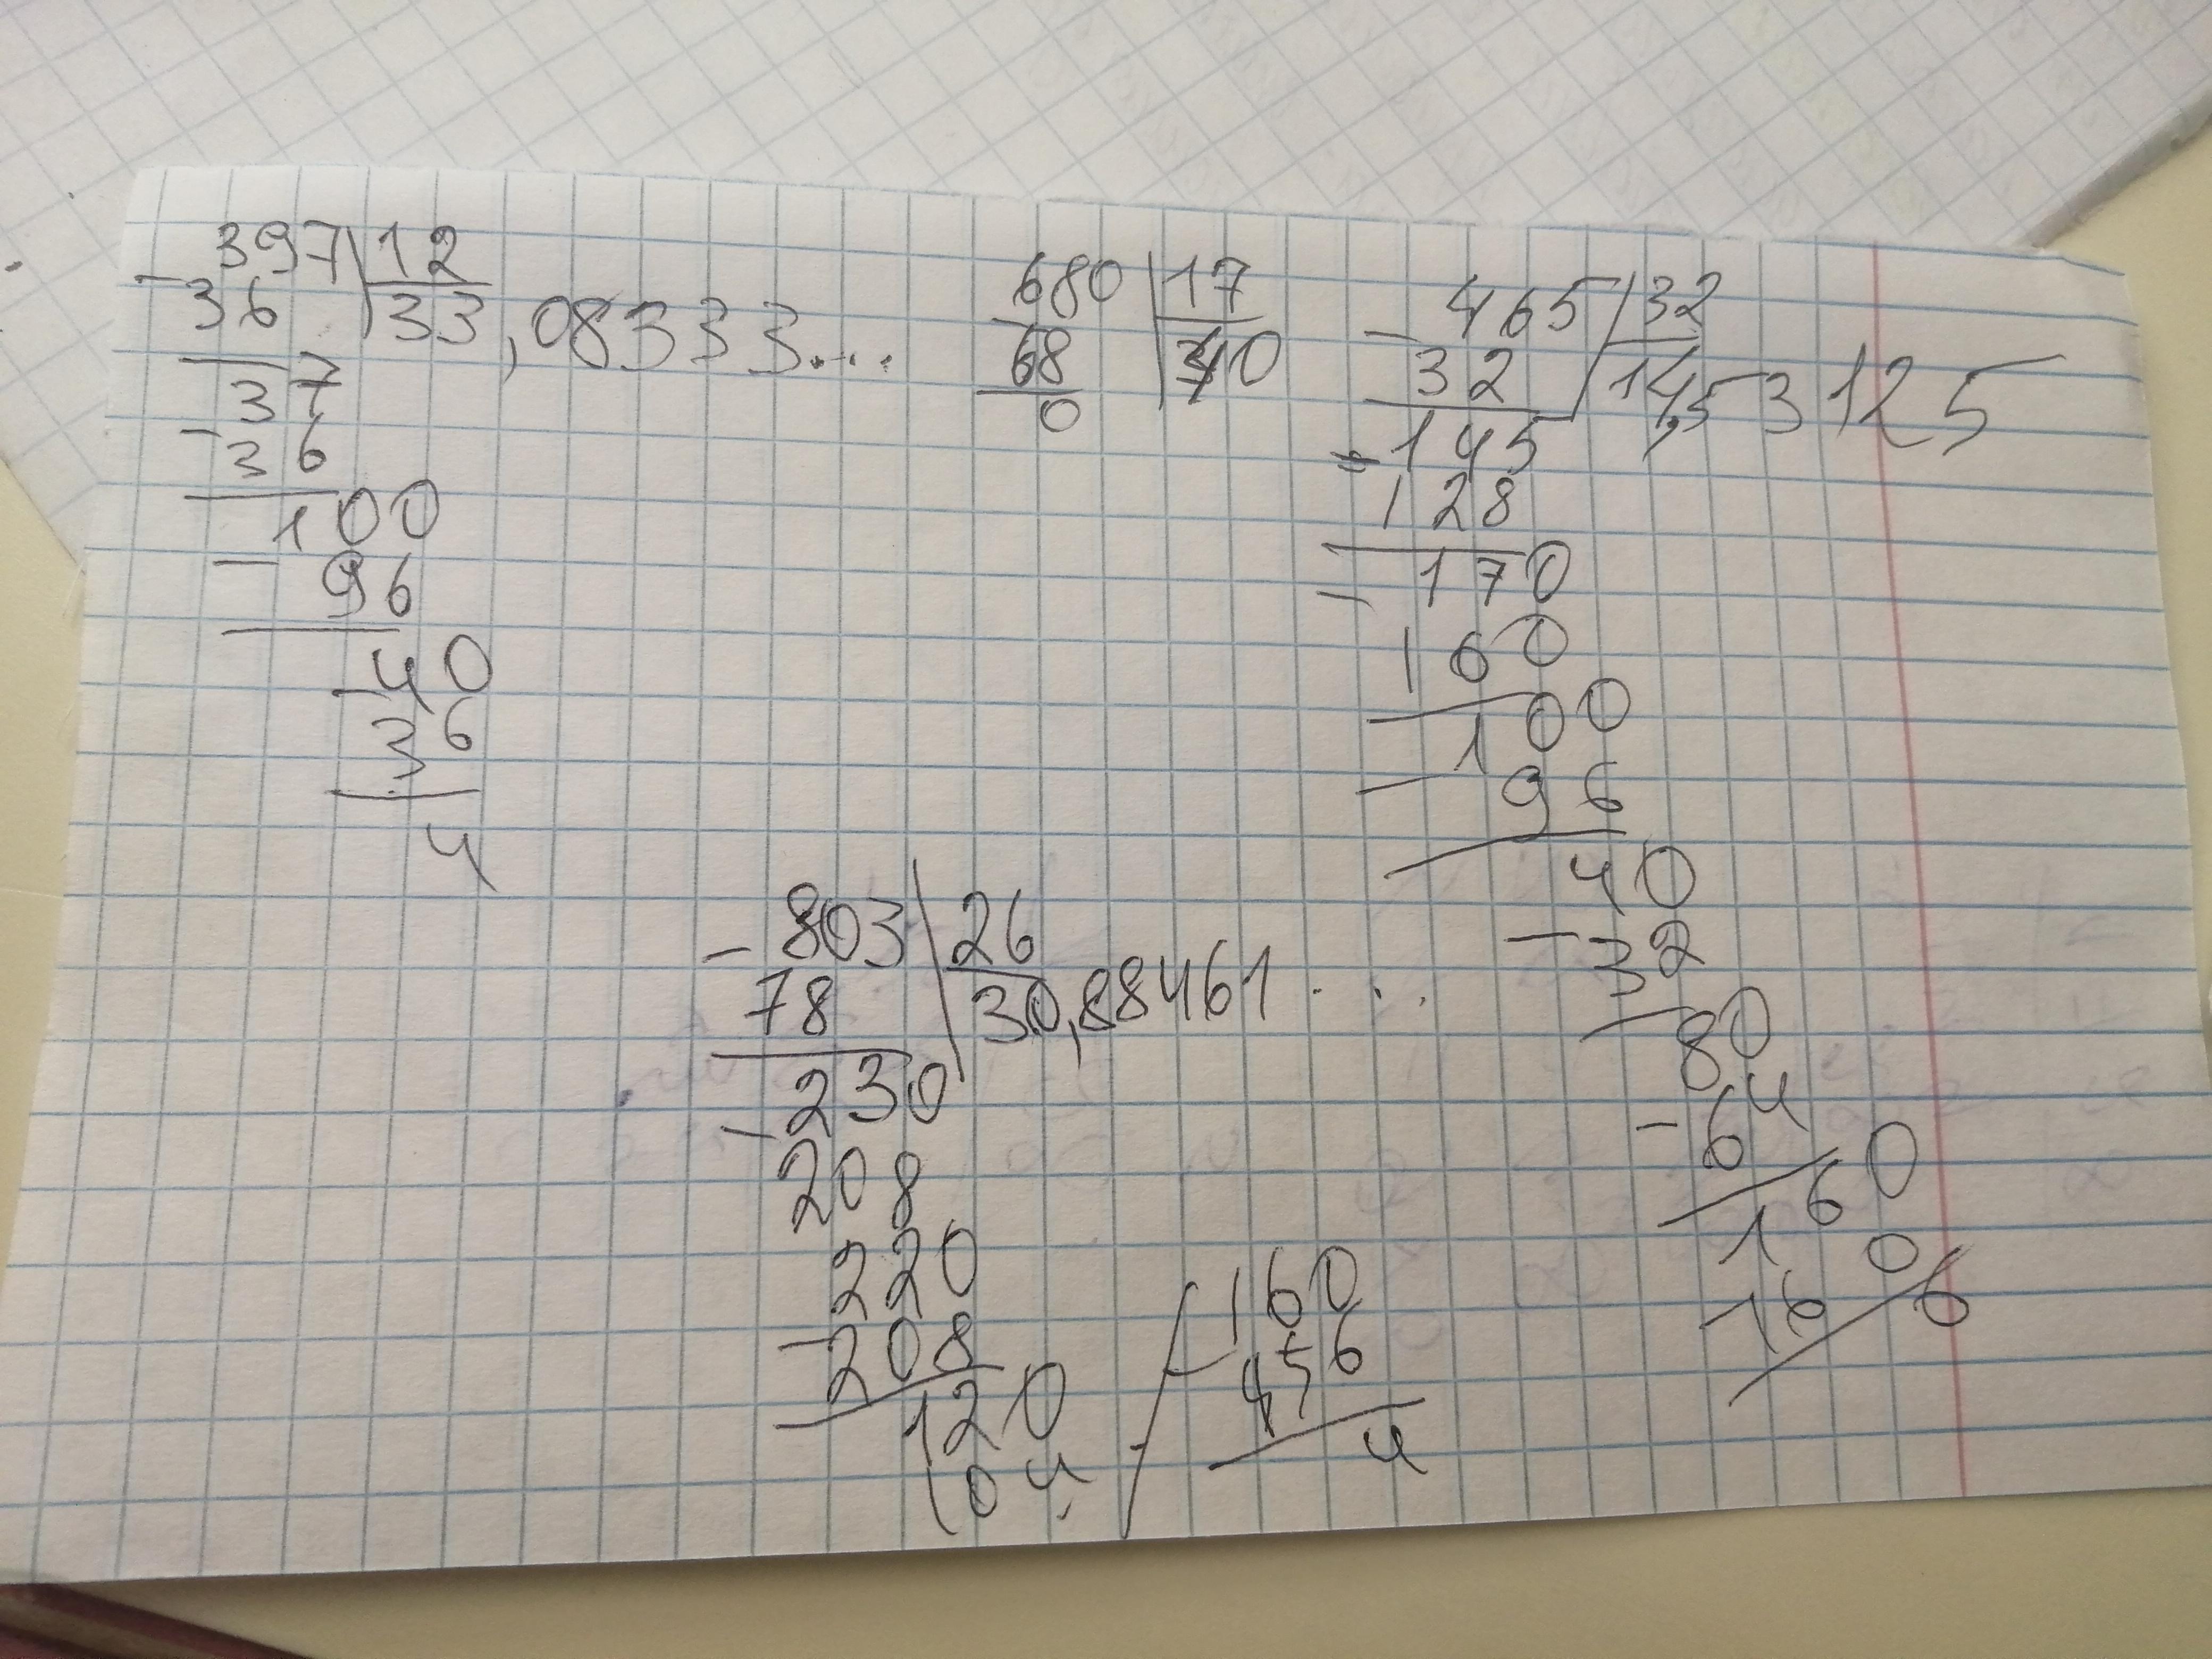 397 12
- 36 33,08333....
37
- 36
100
- 96
40
- 36
4
680 17
- 68 40
0
465 32
- 32 14,53125
- 145
128
- 170
160
100
- 96
40
- 32
80
- 64
160
160
0
803 26
- 78 30,88461...
230
- 208
220
- 208
120
104
160
- 156
4